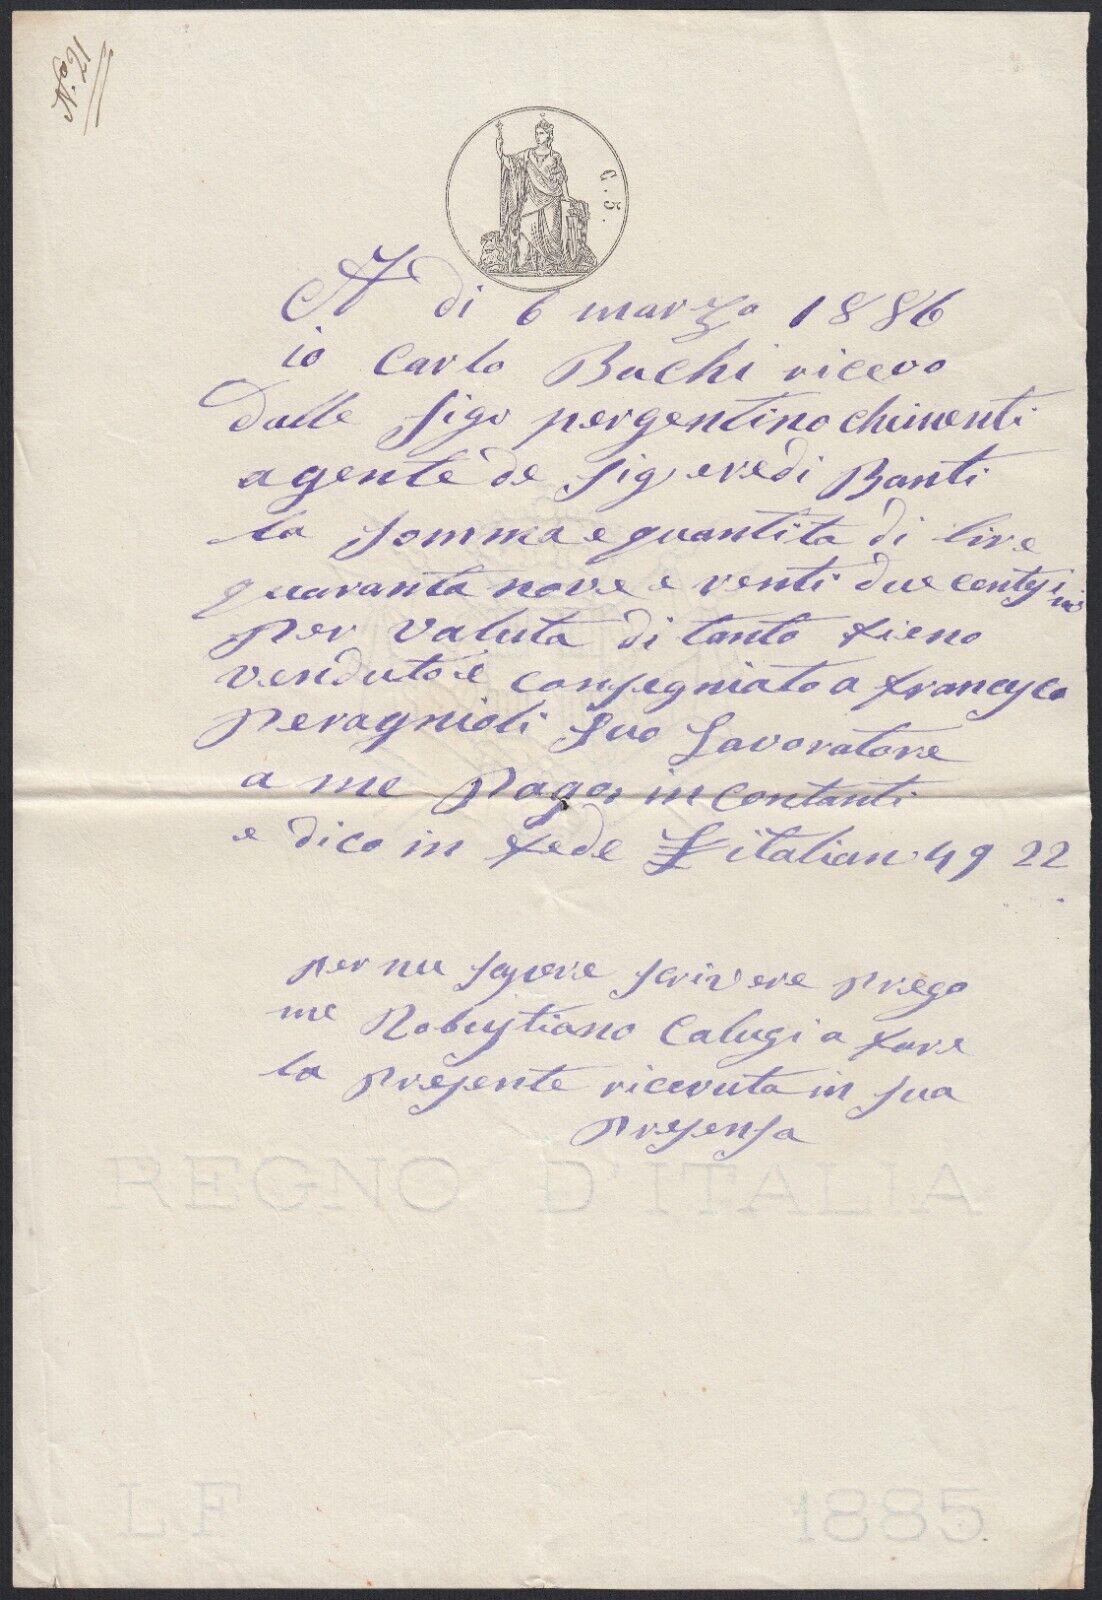 N.° 21
C. 5.
A di 6 marzo 1886
io Carlo Buchi ricevo
dalle sigr pergentino chimenti
agente de sig eredi Banti
la somma e quantita di lire
quaranta nove e venti due centesimi
per valuta di tanto fieno
venduto e consegniato a francesco
peragnioli suo Lavoratore
a me pago in contanti
e dico in fede £ italian 49 22
per nu sapere scrivere prego
me Robustiano Calugi a fare
la presente ricevuta in sua
presensa
REGNO D'ITALIA
LF 1885